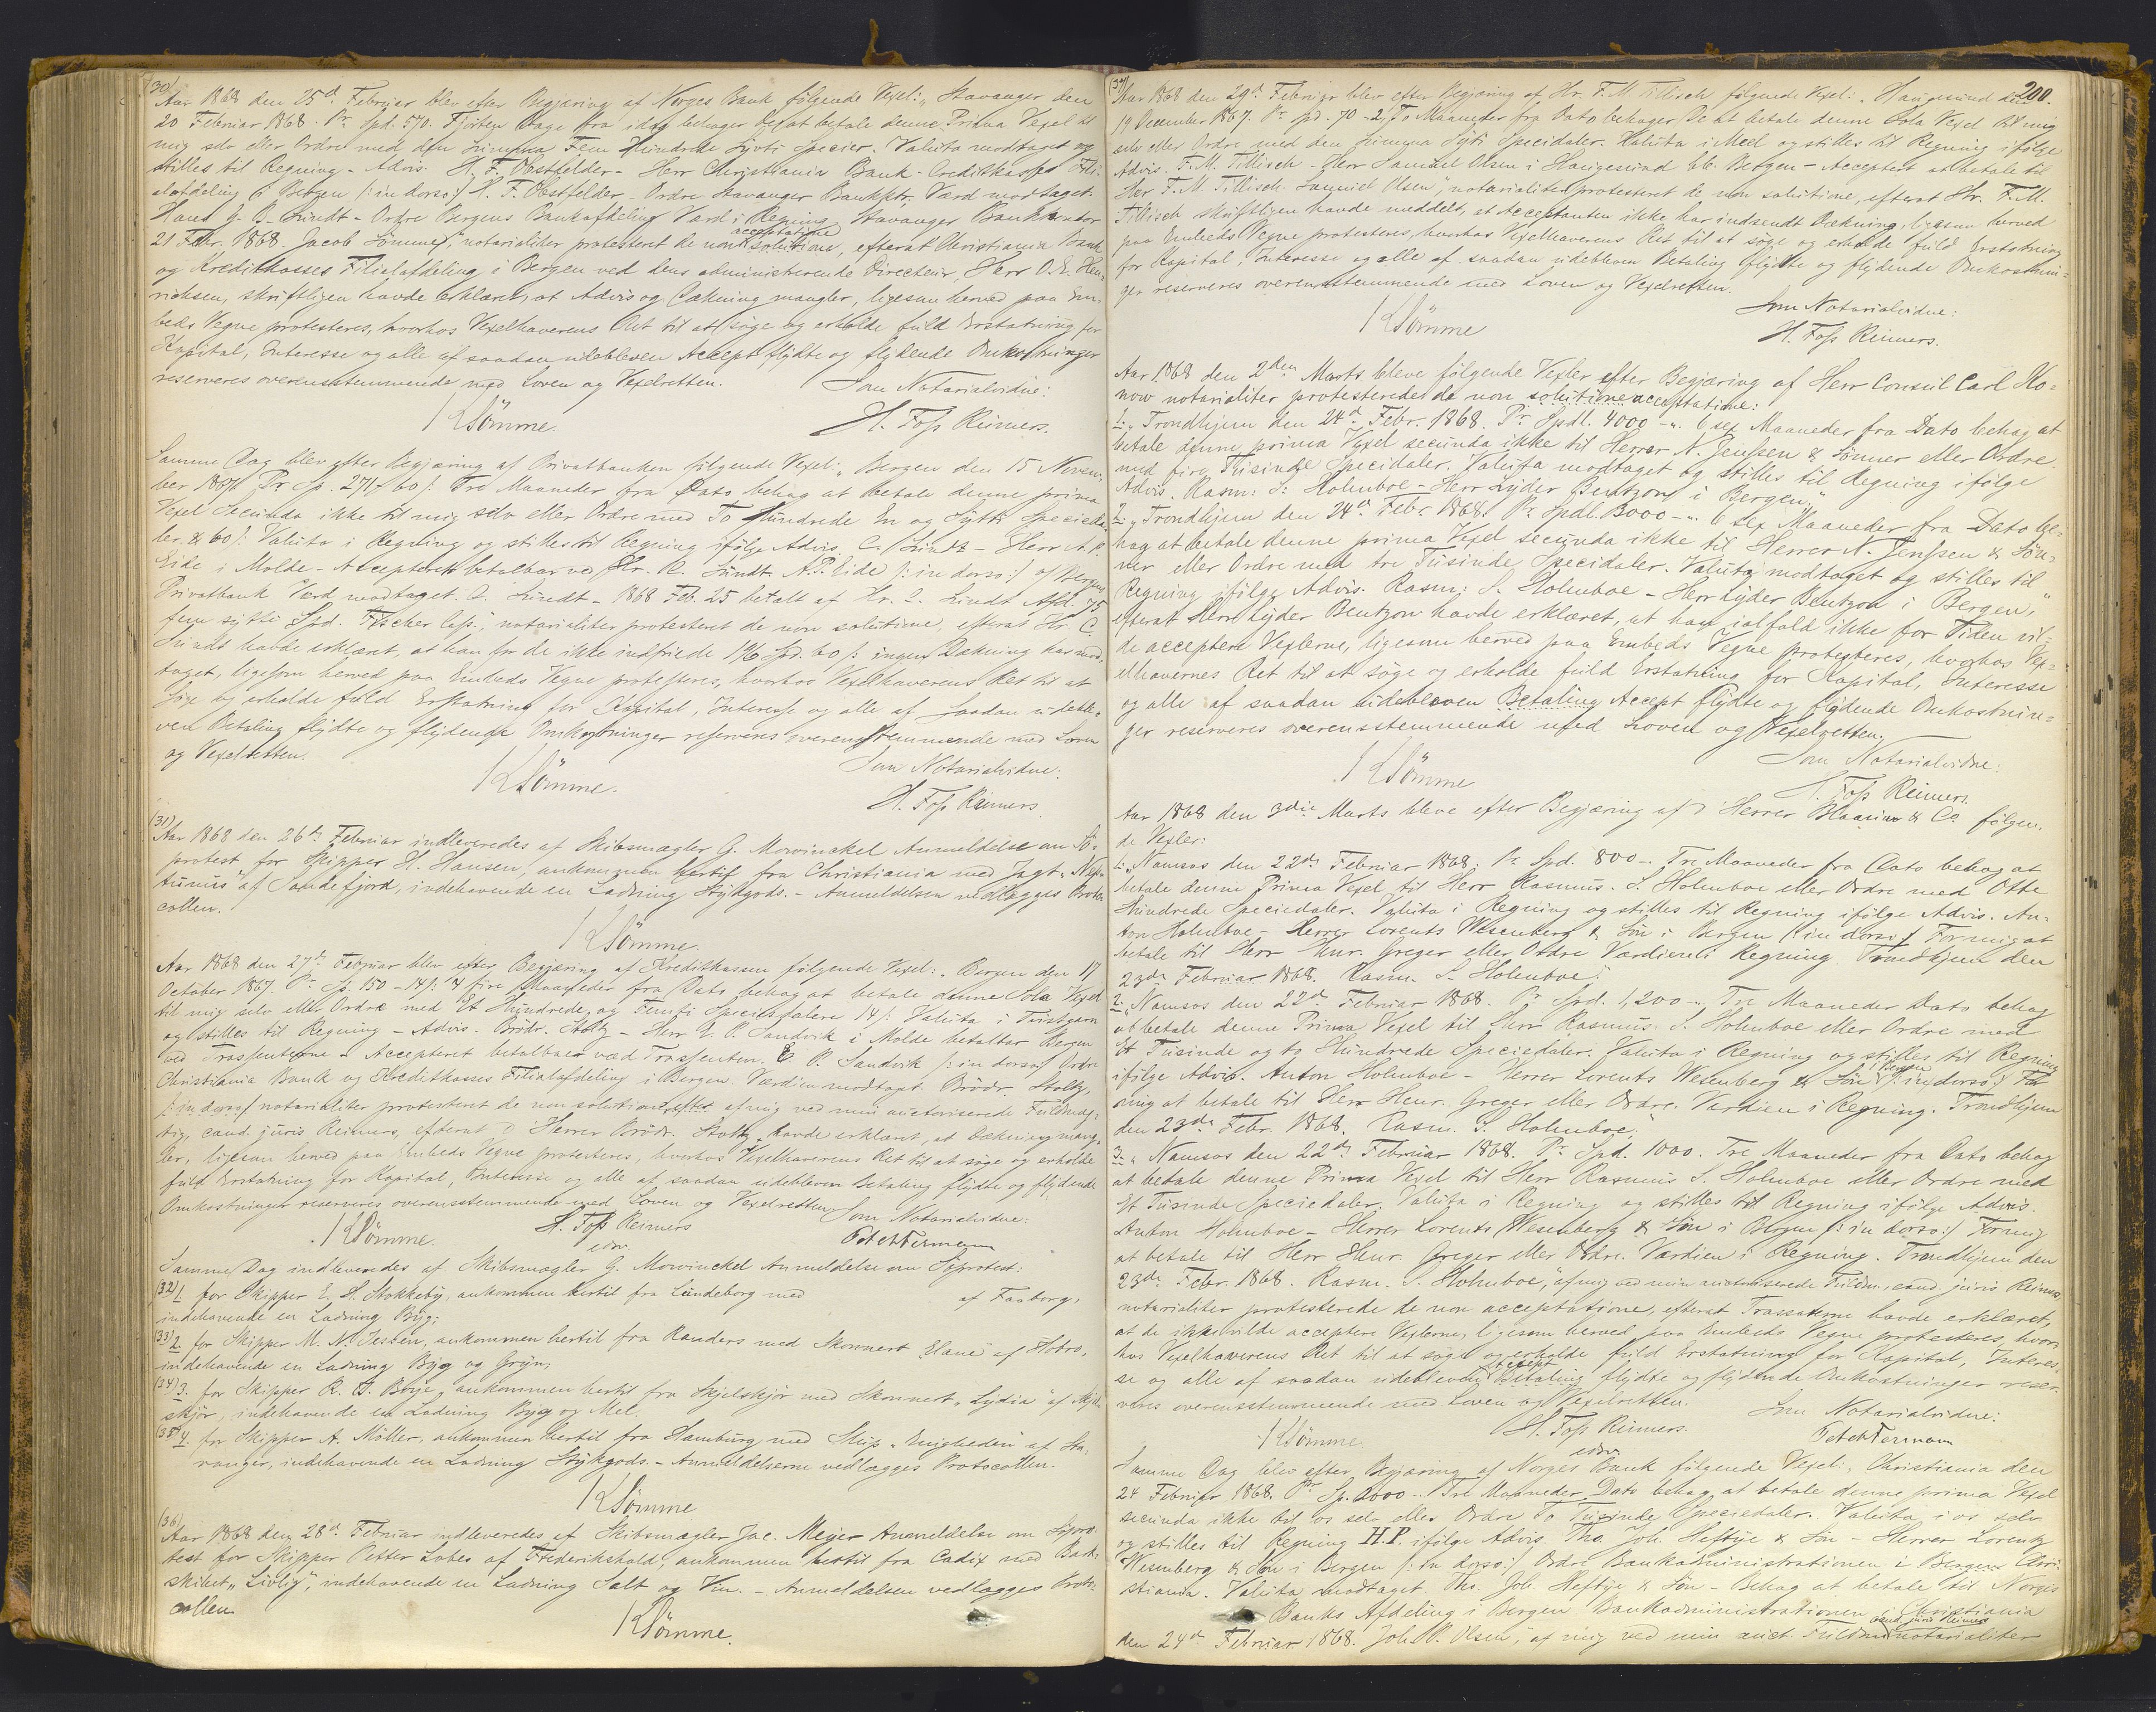 (30)
Aar 1868 den 25d. Februar blev efter Begjæring af Norges Bank følgende Vexel: „Stavanger den
20 Februar 1868. Pr. Spd. 570. Fjorten Dage fra idag behager De at betale denne Prima Vexel til
mig selv eller Ordre med den Summa Fem Hundrede Sytti Specier. Valuta modtaget og
stilles til Regning - Advis. H. F. Obstfelder - Herr Christiania Bank- Creditkasses Fili-
alafdeling i Bergen /: in dorso :/ H. F. Obstfelder - Ordre Stavanger Bankktr. Værd modtaget.
Hans G. B. Sundt - Ordre Bergens Bankafdeling Værd i Regning Stavanger Bankkontor
21 Febr. 1868. Jacob Sömme", notarialiter protesteret de non solutione, efterat Christiania Bank
acceptatione
og Kreditkasses Filialafdeling i Bergen ved dens administrerende Directeur, Herr O. E. Hen-
richsen, skriftligen havde erklæret, at Advis og Dækning mangler, ligesom herved paa Em-
beds Vegne protesteres, hvorhos Vexelhaverens Ret til at søge og erholde fuld Erstatning for
Kapital, Interesse og alle af saadan udebleven Accept flydte og flydende Omkostninger
reserveres overensstemmende med Loven og Vexelretten.
Som Notarialvidne:
K Sömme.
H. Foss Reimers.
Samme Dag blev efter Begjæring af Privatbanken følgende Vexel: „Bergen den 15 Novem-
ber 1867. Pr Sp. 271 60 /: Tre Maaneder fra Dato behag at betale denne prima
Vexel Secunda ikke til mig selv eller Ordre med To Hundrede En og Sytti Specieda-
ler & 60 /: Valuta i Regning og stilles til Regning ifølge Advis. C. Sundt - Herr A. P.
Eide i Molde - Accepteret betalbar ved Hr. C. Sundt. A. P. Eide /: in dorso :/ Bergens
Privatbank Værd modtaget. C. Sundt - 1868 Feb. 25 betalt af Hr. C. Sundt Afd. 75
fem sytti Spd. Fischer Css.", notarialiter protesteret de non solutione, efterat Hr. C.
Sundt havde erklæret, at han for de ikke indfriede 196 Spd. 60 /: ingen Dækning har mod-
taget, ligesom herved paa Embeds Vegne protesteres, hvorhos Vexelhaverens Ret til at
søge og erholde fuld Erstatning for Kapital, Interesse og alle af saadan udeble-
ven Betaling flydte og flydende Omkostninger reserveres overensstemmende med Loven
og Vexelretten.
Som Notarialvidne:
K Sömme.
H. Foss Reimers.
(31)
Aar 1868 den 26de Februar indleveredes af Skibsmægler G. Mowinckel Anmeldelse om Sö-
protest for Skipper H. Hansen, ankommen hertil fra Christiania med Jagt „Nep-
tunus" af Sandefjord, indehavende en Ladning Stykgods. - Anmeldelsen vedlægges Proto-
collen.
K Sömme.
Aar 1868 den 27de Februar blev efter Begjæring af Kreditkassen følgende Vexel: „Bergen den 17
October 1867. Pr. Sp. 150 - 14 /: 4 fire Maaneder fra Dato behag at betale denne Sola Vexel
til mig selv eller Ordre med Et Hundrede og Femti Speciedalere 14 /: Valuta i Tvistgarn
og stilles til Regning - Advis. Brödr. Stoltz - Herr E. P. Sandvik i Molde betalbar Bergen
ved Trassenterne - Accepteret betalbar ved Trassenten. E. P. Sandvik /: in dorso :/ Ordre
Christiania Bank og Kreditkasses Filialafdeling i Bergen Værdien modtaget. Brödr. Stoltz,
/: in dorso :/ notarialiter protesteret de non solutione af mig ved min auctoriserede Fuldmæg-
tig, cand. juris Reimers, efterat Herrer Brödr. Stoltz havde erklæret, at Dækning mang-
ler, ligesom herved paa Embeds Vegne protesteres, hvorhos Vexelhaverens Ret til at søge og erholde
fuld Erstatning for Kapital, Interesse og alle af saadan udebleven Betaling flydte og flydende
Omkostninger reserveres overensstemmende med Loven og Vexelretten.
Som Notarialvidne:
K Sömme.
H. Foss Reimers
edsv.
Samme Dag indleveredes af Skibsmægler G. Mowinckel Anmeldelse om Søprotest:
(32) 1. for Skipper E. H. Stokkeby, ankommen hertil fra Lundeborg med af Faaborg,
indehavende en Ladning Byg;
(33) 2. for Skipper M. N. Jessen, ankommen hertil fra Randers med Skonnert Elane af Hobro,
indehavende en Ladning Byg og Gryn;
(34) 3. for Skipper R. B. Boye, ankommen hertil fra Skjelskjør med Skonnert „Lydia" af Skjel-
skjør, indehavende en Ladning Byg og Mel.
(35) 4. for Skipper A. Möller, ankommen hertil fra Hamburg med Skip „Enigheden" af Sta-
vanger, indehavende en Ladning Stykgods. - Anmeldelserne vedlægges Protocollen.
K Sömme
(36)
Aar 1868 den 28d. Februar indleveredes af Skibsmægler Jac. Meyer Anmeldelse om Søpro-
test for Skipper Petter Lobes af Frederikshald, ankommen hertil fra Cadix med Bark-
skibet „Livlig", indehavende en Ladning Salt og Vin. - Anmeldelsen vedlægges Proto-
collen.
K Sömme.
200.
(37)
Aar 1868 den 29d. Februar blev efter Begjæring af Hr. F. M. Tillisch følgende Vexel: „Haugesund den
19 December 1867. Pr. Spd. 70 - 2/To Maaneder fra Dato behager De at betale denne Sola Vexel til mig
selv eller Ordre med den Summa Sytti Speciedaler. Valuta i Meel og stilles til Regning ifølge
Advis. F. M. Tillisch - Herr Samuel Olsen i Haugesund bb. Bergen - Accepteret at betale til
Herr F. M. Tillisch. Samuel Olsen", notarialiter protesteret de non solutione, efterat Hr. F. M.
Tillisch skriftligen havde meddelt, at Acceptanten ikke har indsendt Dækning, ligesom herved
paa Embeds Vegne protesteres, hvorhos Vexelhaverens Ret til at søge og erholde fuld Erstatning
for Kapital, Interesse og alle af saadan udebleven Betaling flydte og flydende Omkostnin-
ger reserveres overensstemmende med Loven og Vexelretten.
Som Notarialvidne:
K Sömme
H. Foss Reimers.
Aar 1868 den 2den Marts bleve følgende Vexler efter Begjæring af Herr Consul Carl Ko-
now notarialiter protesterede de non solutione acceptatione:
1. „Trondhjem den 24d. Febr. 1868. Pr. Spdl. 4000 -". 6 sex Maaneder fra Dato behag at
betale denne prima Vexel secunda ikke til Herrer N. Jenssen & Sönner eller Ordre
med fire Tusinde Speciedaler. Valuta modtaget og stilles til Regning ifølge
Advis. Rasm: S: Holmboe - Herr Lyder Bentzon i Bergen;"
2. „Trondhjem den 24d. Febr. 1868. Pr. Spdl. 3000 -". 6 sex Maaneder fra Dato be-
hag at betale denne prima Vexel secunda ikke til Herrer N. Jenssen & Søn-
ner eller Ordre med tre Tusinde Speciedaler. Valuta modtaget og stilles til
Regning ifølge Advis. Rasm: S. Holmboe - Herr Lyder Bentzon i Bergen,"
efterat Herr Lyder Bentzon havde erklæret, at han ialfald ikke for Tiden vil-
de acceptere Vexlerne, ligesom herved paa Embeds Vegne protesteres, hvorhos Vex-
elhavernes Ret til at søge og erholde fuld Erstatning for Kapital, Interesse
og alle af saadan udebleven Betaling Accept flydte og flydende Omkostnin-
ger reserveres overensstemmende med Loven og Vexelretten.
Som Notarialvidne:
K Sömme
H. Foss Reimers.
Aar 1868 den 3die Marts bleve efter Begjæring af Herrer Blaauw & Co følgen-
de Vexler:
1. „Namsos den 22de Februar 1868. Pr. Spd. 800 -. Tre Maaneder fra Dato behag at
betale denne Prima Vexel til Herr Rasmus. S. Holmboe eller Ordre med Otte
Hundrede Speciedaler. Valuta i Regning og stilles til Regning ifølge Advis. An-
ton Holmboe - Herrer Lorents Wesenberg & Søn i Bergen /: in dorso :/ For mig at
betale til Herr Henr. Greger eller Ordre Værdien i Regning. Trondhjem den
23de Februar 1868. Rasm. S. Holmboe;"
2. „Namsos den 22de Februar 1868. Pr Spd. 1,200 -. Tre Maaneder Dato behag
at betale denne Prima Vexel til Herr Rasmus. S. Holmboe eller Ordre med
Et Tusinde og to Hundrede Speciedaler. Valuta i Regning og stilles til Regning
ifølge Advis. Anton Holmboe - Herrer Lorents Wesenberg & Søn i Bergen /: in dorso :/ For
mig at betale til Herr Henr. Greger eller Ordre. Værdien i Regning. Trondhjem
den 23de Febr. 1868. Rasm. S. Holmboe;"
3. „Namsos den 22de Februar 1868. Pr. Spd. 1000. Tre Maaneder fra Dato behag
at betale denne Prima Vexel til Herr Rasmus S. Holmboe eller Ordre med
Et Tusinde Speciedaler. Valuta i Regning og stilles til Regning ifølge Advis.
Anton Holmboe - Herrer Lorents Wesenberg & Søn i Bergen /: in dorso :/ For mig
at betale til Herr Henr. Greger eller Ordre. Værdien i Regning. Trondhjem den
23de Febr. 1868. Rasm. S. Holmboe", af mig ved min auctoriserede Fuldm., cand. juris Reimers
notarialiter protesterede de non acceptatione, efterat Trassaterne havde erklæret,
at de ikke vilde acceptere Vexlerne, ligesom herved paa Embeds Vegne protesteres, hvor-
hos Vexelhaverens Ret til at søge og erholde fuld Erstatning for Kapital, Interes-
se og alle af saadan udebleven Betaling flydte og flydende Omkostninger reser-
Accept
veres overensstemmende med Loven og Vexelretten.
Som Notarialvidne:
K Sömme.
H. Foss Reimers.
edsv.
Samme Dag blev efter Begjæring af Norges Bank følgende Vexel: „Christiania den
24 Februar 1868. Pr Sp. 2000 -. Tre Maaneder Dato behag at betale denne prima Vexel
secunda ikke til os selv eller Ordre To Tusinde Speciedaler. Valuta i os selv
og stilles til Regning H.P. ifølge Advis Tho. Joh. Heftye & Søn - Herrer Lorentz
Wesenberg & Søn i Bergen /: in dorso :/ Ordre Bankadministrationen i Bergen Chri-
stiania. Valuta modtaget Tho. Joh. Heftye & Søn - Behag at betale til Norges
Banks Afdeling i Bergen Bankadministrationen i Christiania
den 24d. Februar 1868. Joh. N. Olsen", af mig ved min auct. Fuldm. cand. juris Reimers notarialiter